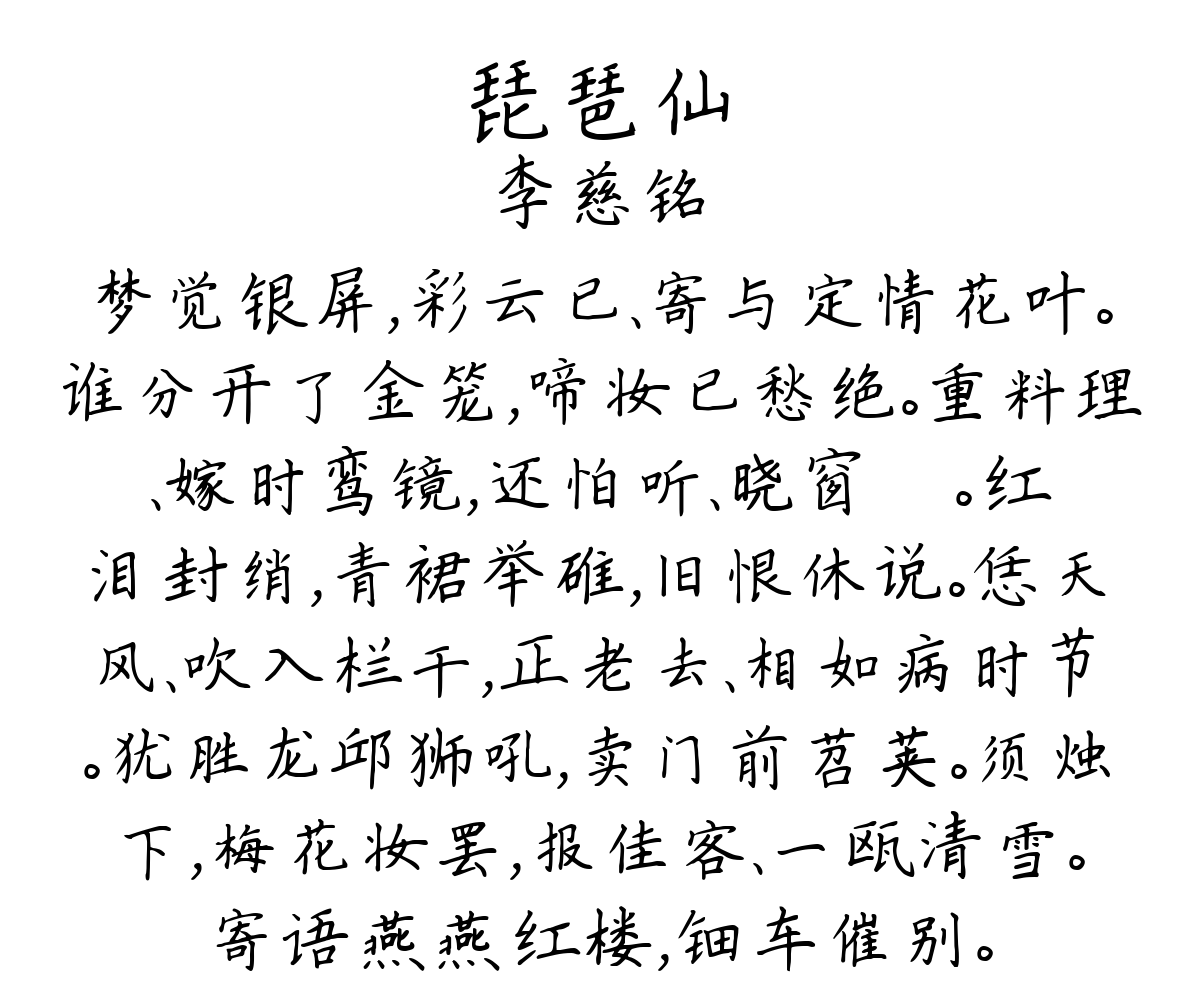 琵琶仙
李慈铭
梦觉银屏,彩云已、寄与定情花叶。
谁分开了金笼,啼妆已愁绝。重料理
、嫁时鸾镜,还怕听、晓窗 。红
泪封绡,青裙举碓,旧恨休说。恁天
风、吹入栏干,正老去、相如病时节
。犹胜龙邱狮吼,卖门前苕荚。须烛
下,梅花妆罢,报佳客、一瓯清雪。
寄语燕燕红楼,钿车催别。